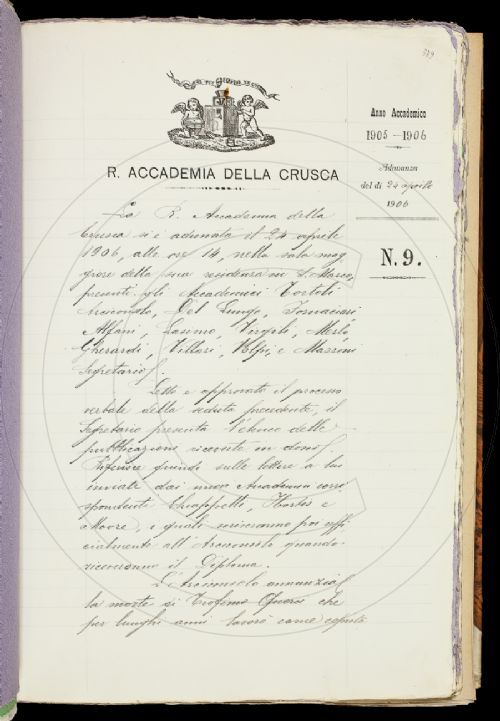 R. ACCADEMIA DELLA CRUSCA
Anno Accademico
1905-1906
Adunanza
del dì 24 aprile
1906
N. 9.
La R. Accademia della
Crusca si è adunata il 24 aprile
1906, alle ore 14, nella sala mag
giore della sua residenza in S. Marco,
presenti gli Accademici Tortoli
Arciconsolo, Del Lungo, Fornaciari,
Alfani, Casini, Merlo,
Gherardi, Villari, Volpi, e Mazzoni
Segretario.
Letto e approvato il processo
verbale della seduta precedente, il
Segretario presenta l'elenco delle
pubblicazioni ricevute in dono.
Riferisce quindi sulle lettere a lui
inviate dai nuovi Accademici corri
spondenti Chiappelli, Hortis e
Moore, i quali scriveranno poi uffi
cialmente all'Arciconsolo quando
riceveranno il Diploma.
L'Arciconsolo annunzia
la morte di che
per lunghi anni lavorò come copista